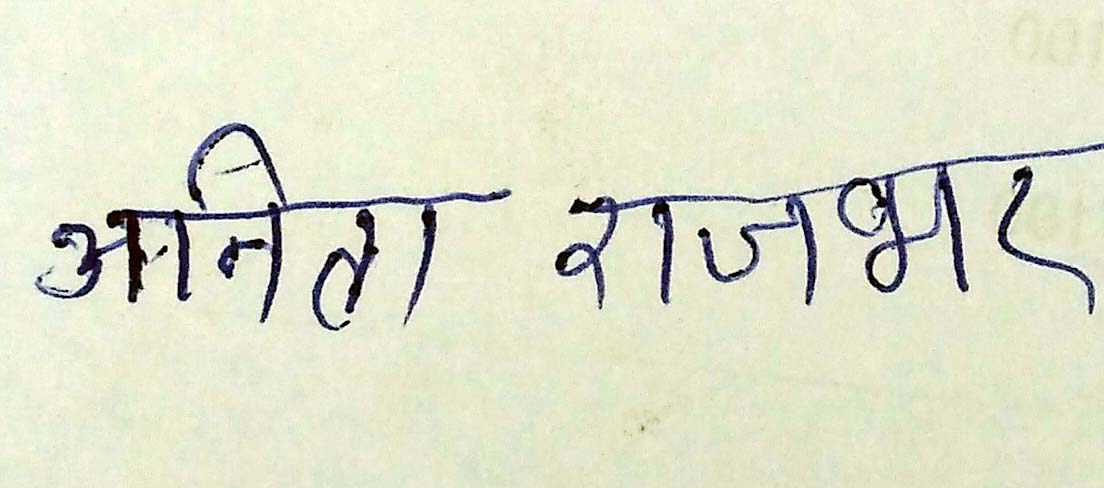 अनिता राजभर